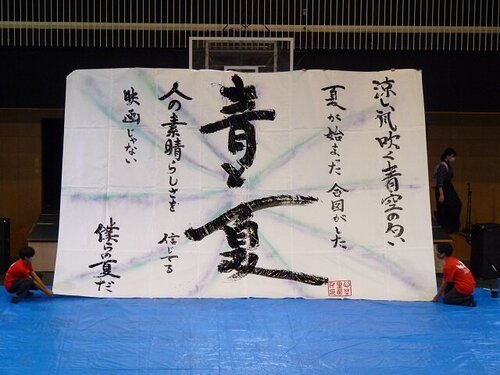 涼しい風吹く青空の匂い
夏が始まった合図がした
青と夏
人の素晴らしさを信じてる
映画じゃない
僕らの夏だ